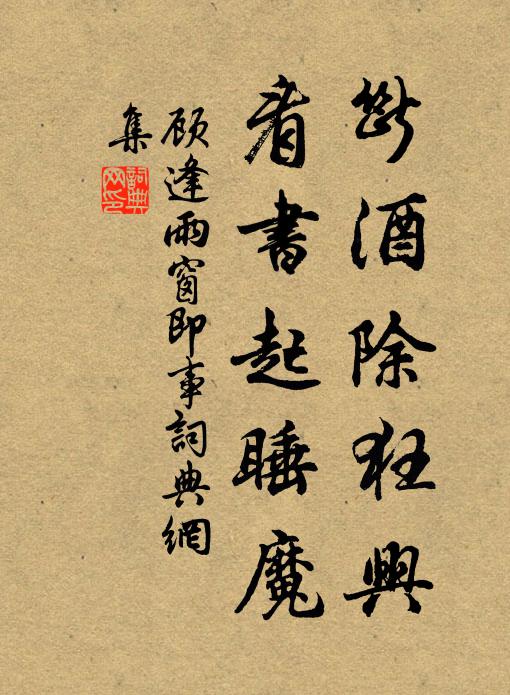 斷酒除狂興
看書起睡魔
顧逢雨窗即事詞典網
集
詞典
网印